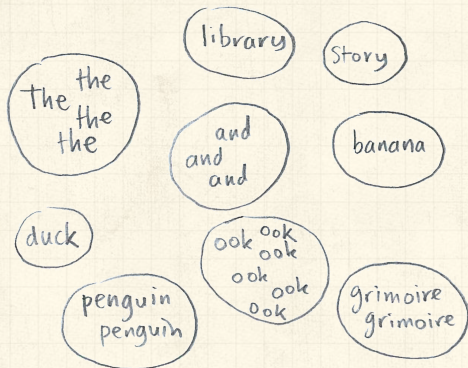 library
story
the
The
the
the
and
and
and
banana
duck
ook
ook
ook
ook
ook
ook
penguin
penguin
grimoire
grimoire